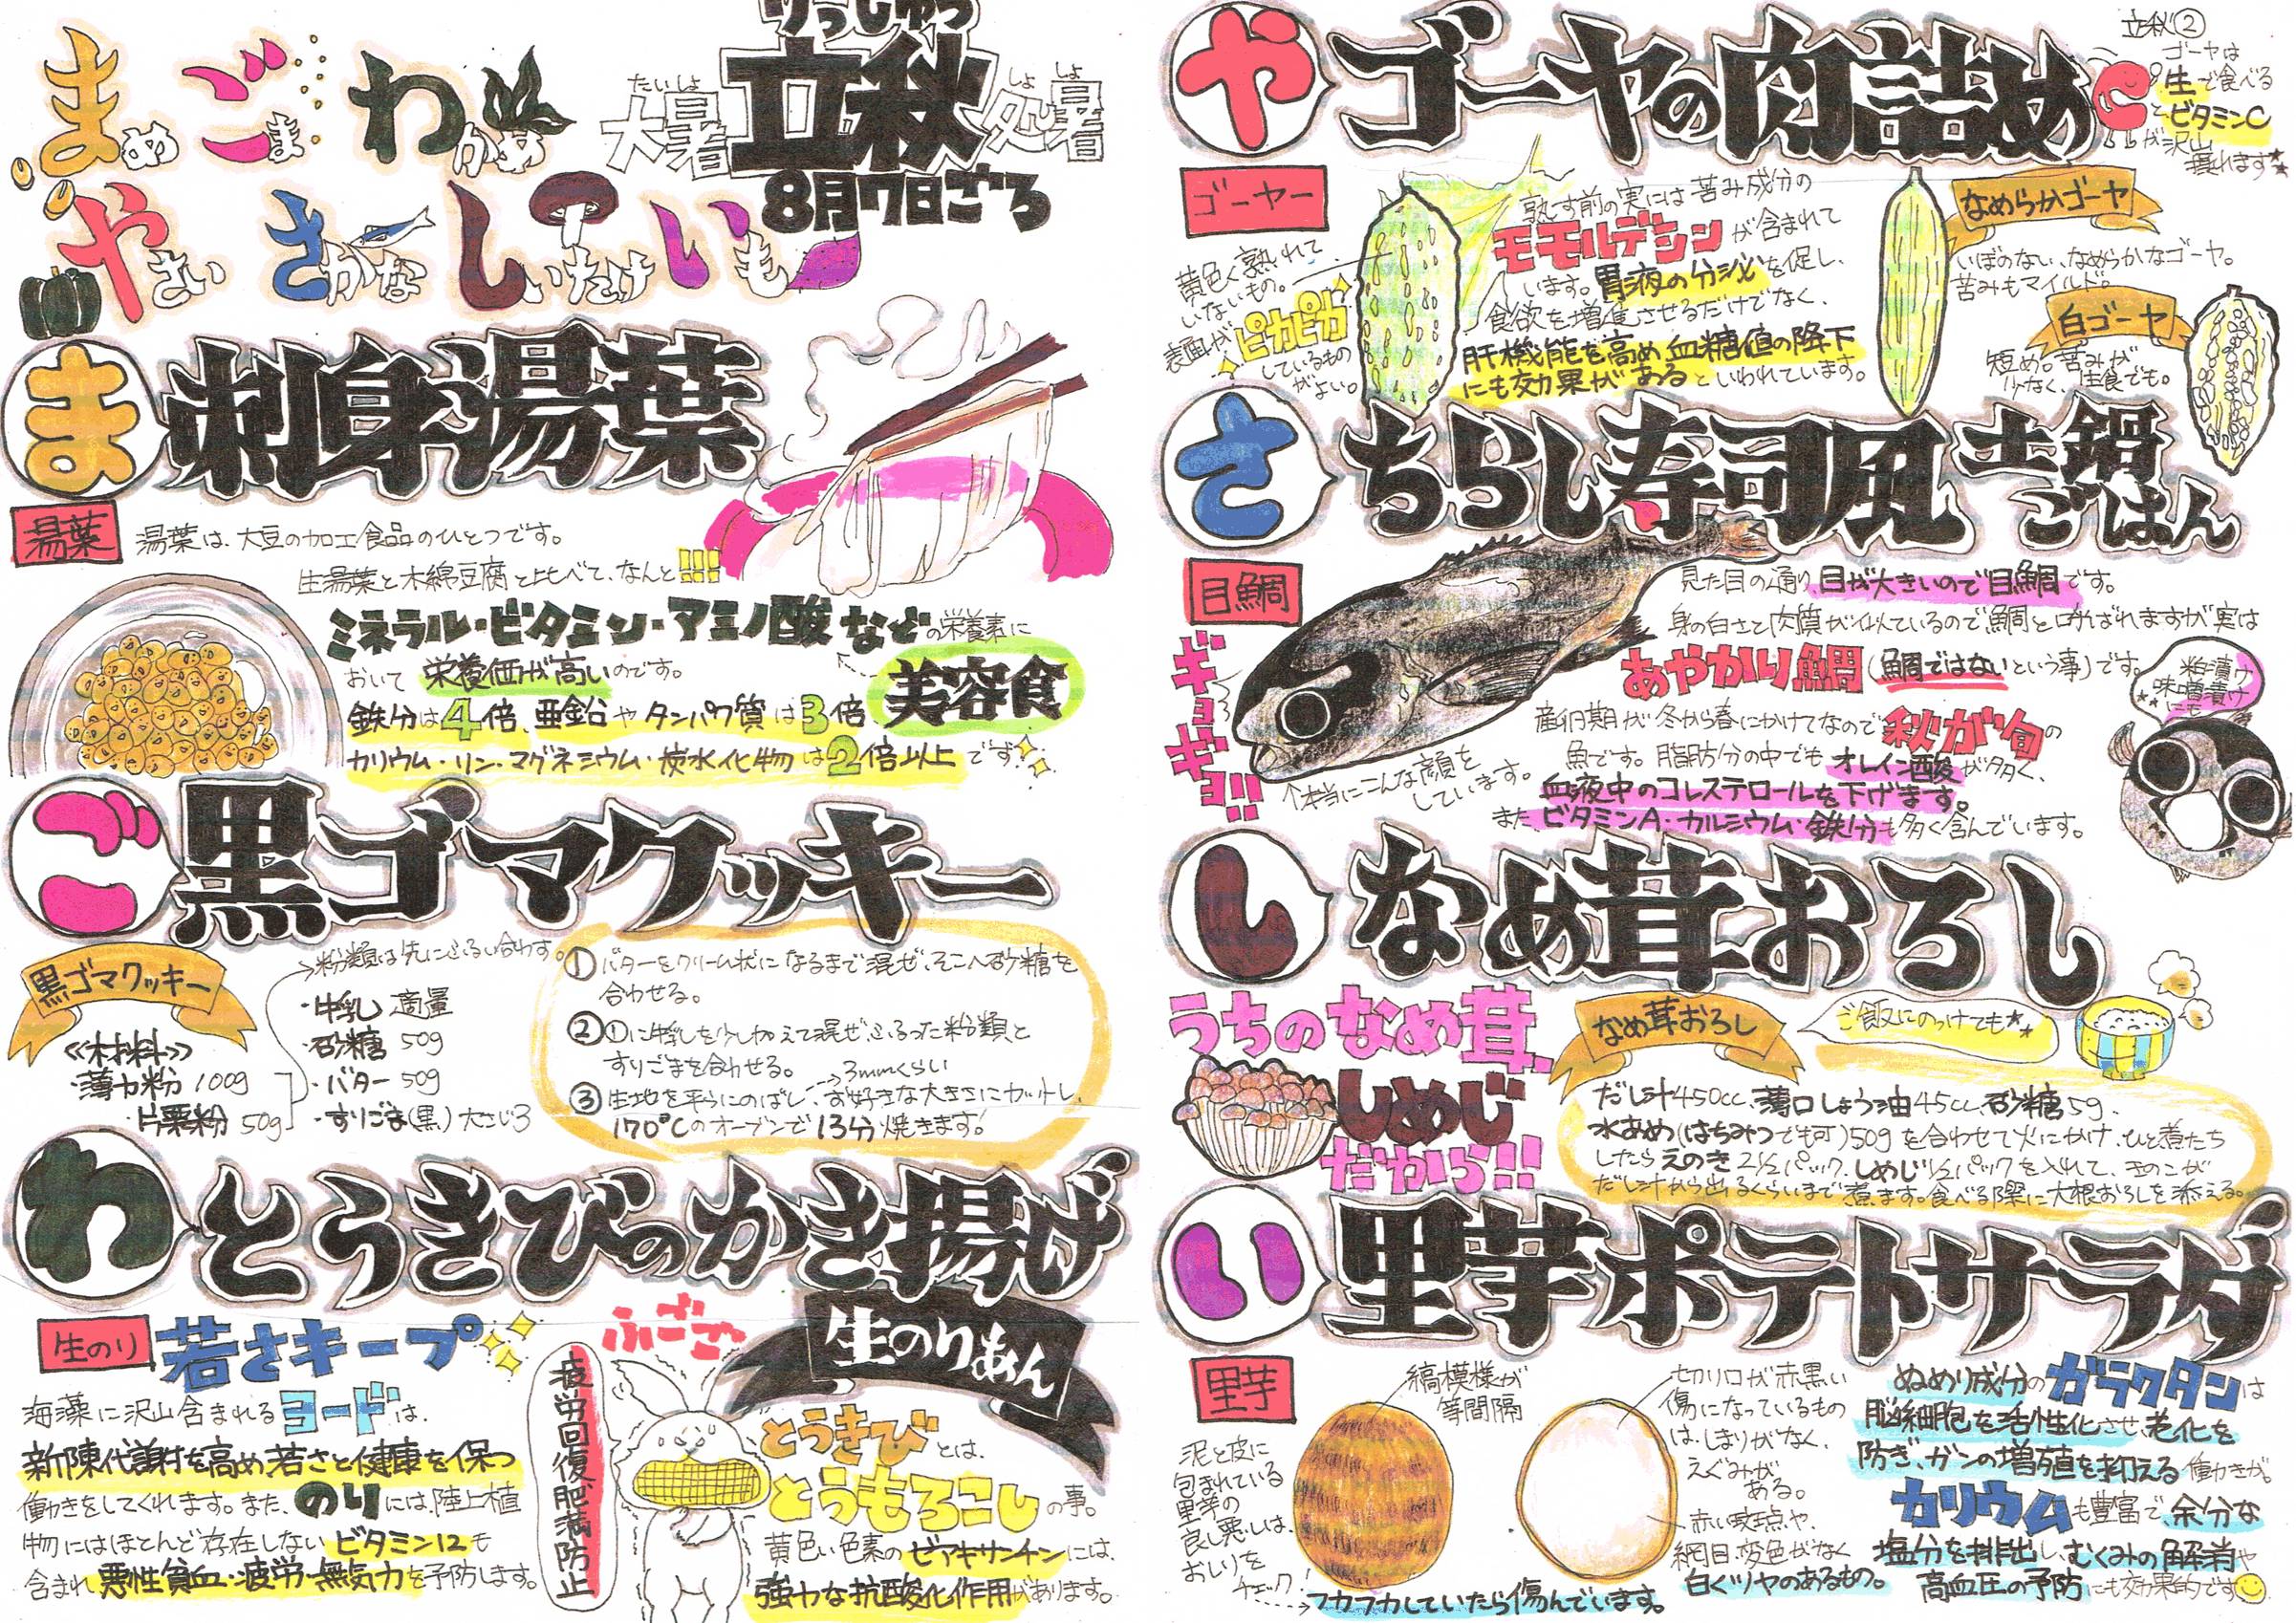 まめ ごま わかめ
やさい さかな しいたけ いも
りっしゅう
たいしょ
大暑
立秋
しょしょ
処暑
8月7日ごろ
ま
刺身湯葉
湯葉
湯葉は、大豆の加工食品のひとつです。
生湯葉と木綿豆腐と比べて、なんと!!!
ミネラル・ビタミン・アミノ酸などの栄養素に
おいて栄養価が高いのです。
美容食
鉄分は4倍、亜鉛やタンパク質は3倍
カリウム・リン・マグネシウム・炭水化物は2倍以上です!
ご
黒ゴマクッキー
黒ゴマクッキー
→粉類は先にふるい合わす。
《材料》
・薄力粉 100g
・片栗粉 50g
・牛乳 適量
・砂糖 50g
・バター 50g
・すりごま(黒) 大さじ3
①バターをクリーム状になるまで混ぜ、そこへ砂糖を
合わせる。
②①に牛乳を少し加えて混ぜ、ふるった粉類と
すりごまを合わせる。
→3mmくらい
③生地を平らにのばし、お好きな大きさにカットし、
170℃のオーブンで13分焼きます!
わ
とうきびのかき揚げ
生のりあん
生のり
若さキープ
海藻に沢山含まれるヨードは、
新陳代謝を高め若さと健康を保つ
働きをしてくれます。また、のりには、陸上植
物にはほとんど存在しないビタミン12も
含まれ、悪性貧血・疲労・無気力を予防します。
疲労回復、肥満防止
ふごご
とうきびとは、
とうもろこしの事。
黄色い色素のゼアキサンチンには、
強力な抗酸化作用があります。
立秋②
や
ゴーヤの肉詰め
C
ゴーヤは
生で食べる
とビタミンC
が沢山
獲れます★
ゴーヤー
黄色く熟れて
いないもの。
表面がピカピカ
しているもの
がよい。
熟す前の実には苦み成分の
モモルデシンが含まれて
います。胃液の分泌を促し、
食欲を増進させるだけでなく、
肝機能を高め血糖値の降下
にも効果があるといわれています。
なめらかゴーヤ
いぼのない、なめらかなゴーヤ。
苦みもマイルド。
白ゴーヤ
短め。苦みが
少なく、生食でも。
さ
ちらし寿司風 土鍋ごはん
目鯛
ギョギョ!!
見た目の通り、目が大きいので目鯛です。
身の白さと肉質が似ているので鯛と呼ばれますが実は
あやかり鯛(鯛ではないという事)です。
産卵期が冬から春にかけてなので秋が旬の
魚です。脂肪分の中でもオレイン酸が多く、
血液中のコレステロールを下げます。
また、ビタミンA・カルシウム・鉄分も多く含んでいます。
↑本当にこんな顔を
しています。
粕漬け
味噌漬け
にも
し
なめ茸おろし
うちのなめ茸、
しめじ
だから!!
なめ茸おろし
ご飯にのっけても★
だし汁450cc、薄口しょう油45cc、砂糖5g、
水あめ(はちみつでも可)50gを合わせて火にかけ、ひと煮たち
したらえのき2½パック、しめじ½パックを入れて、きのこが
だし汁から出るくらいまで煮ます。食べる際に大根おろしを添える。
い
里芋ポテトサラダ
里芋
泥と皮に
包まれている
里芋の
良し悪しは、
おしりを
チェック!
縞模様が
等間隔
切り口が赤黒い
傷になっているもの
は、しまりがなく、
えぐみが
ある。
赤い斑点や、
網目、変色がなく
白くツヤのあるもの。
フカフカしていたら傷んでいます。
ぬめり成分のガラクタンは
脳細胞を活性化させ、老化を
防ぎ、ガンの増殖を抑える働きが。
カリウムも豊富で、余分な
塩分を排出し、むくみの解消や
高血圧の予防にも効果的です